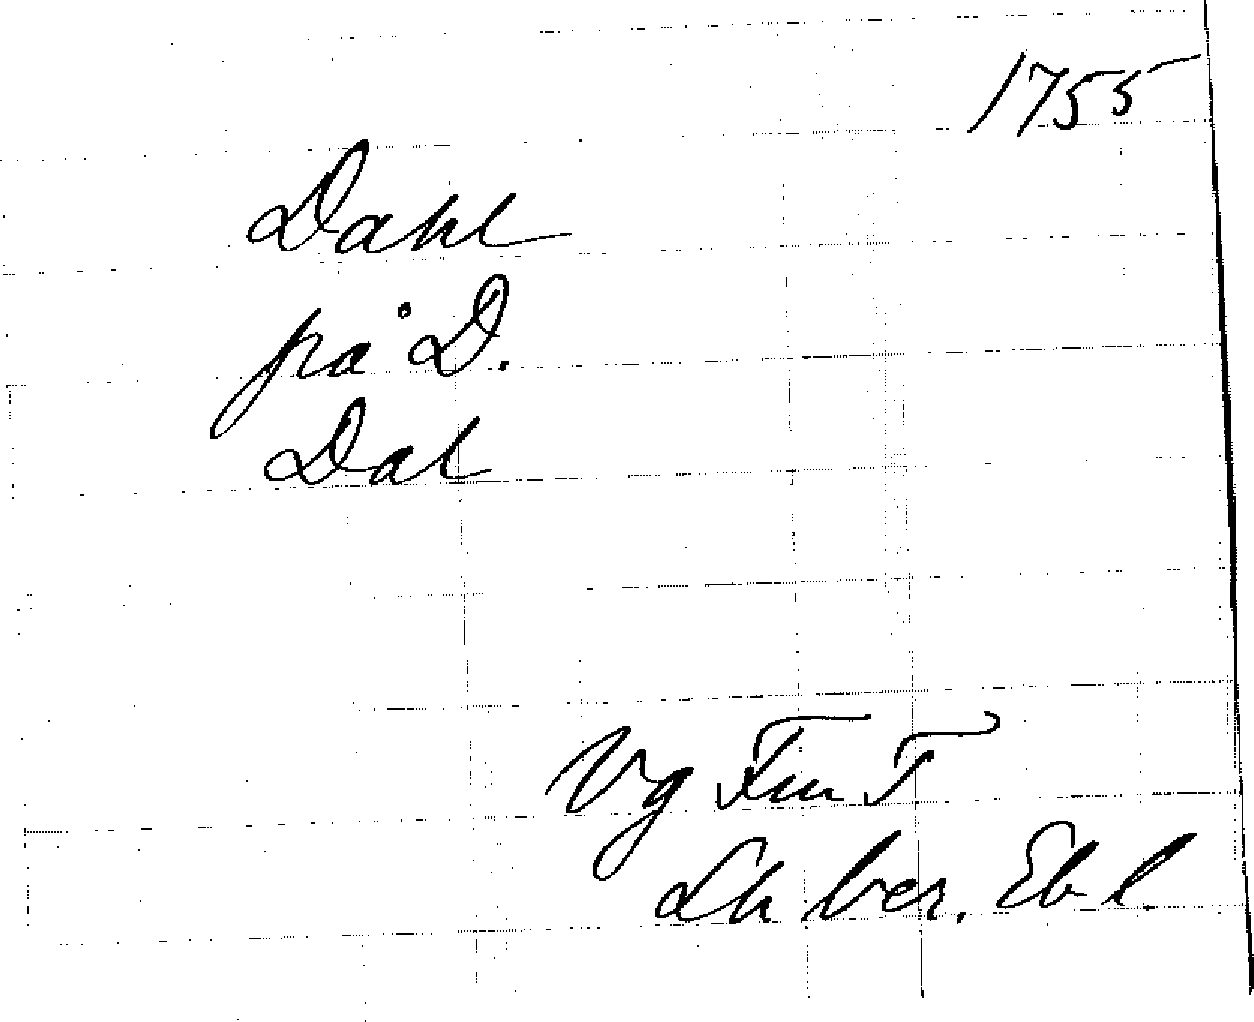 1755
Dahl
på D.
Dal
Vg Fru T
Lk ber. Eb l.